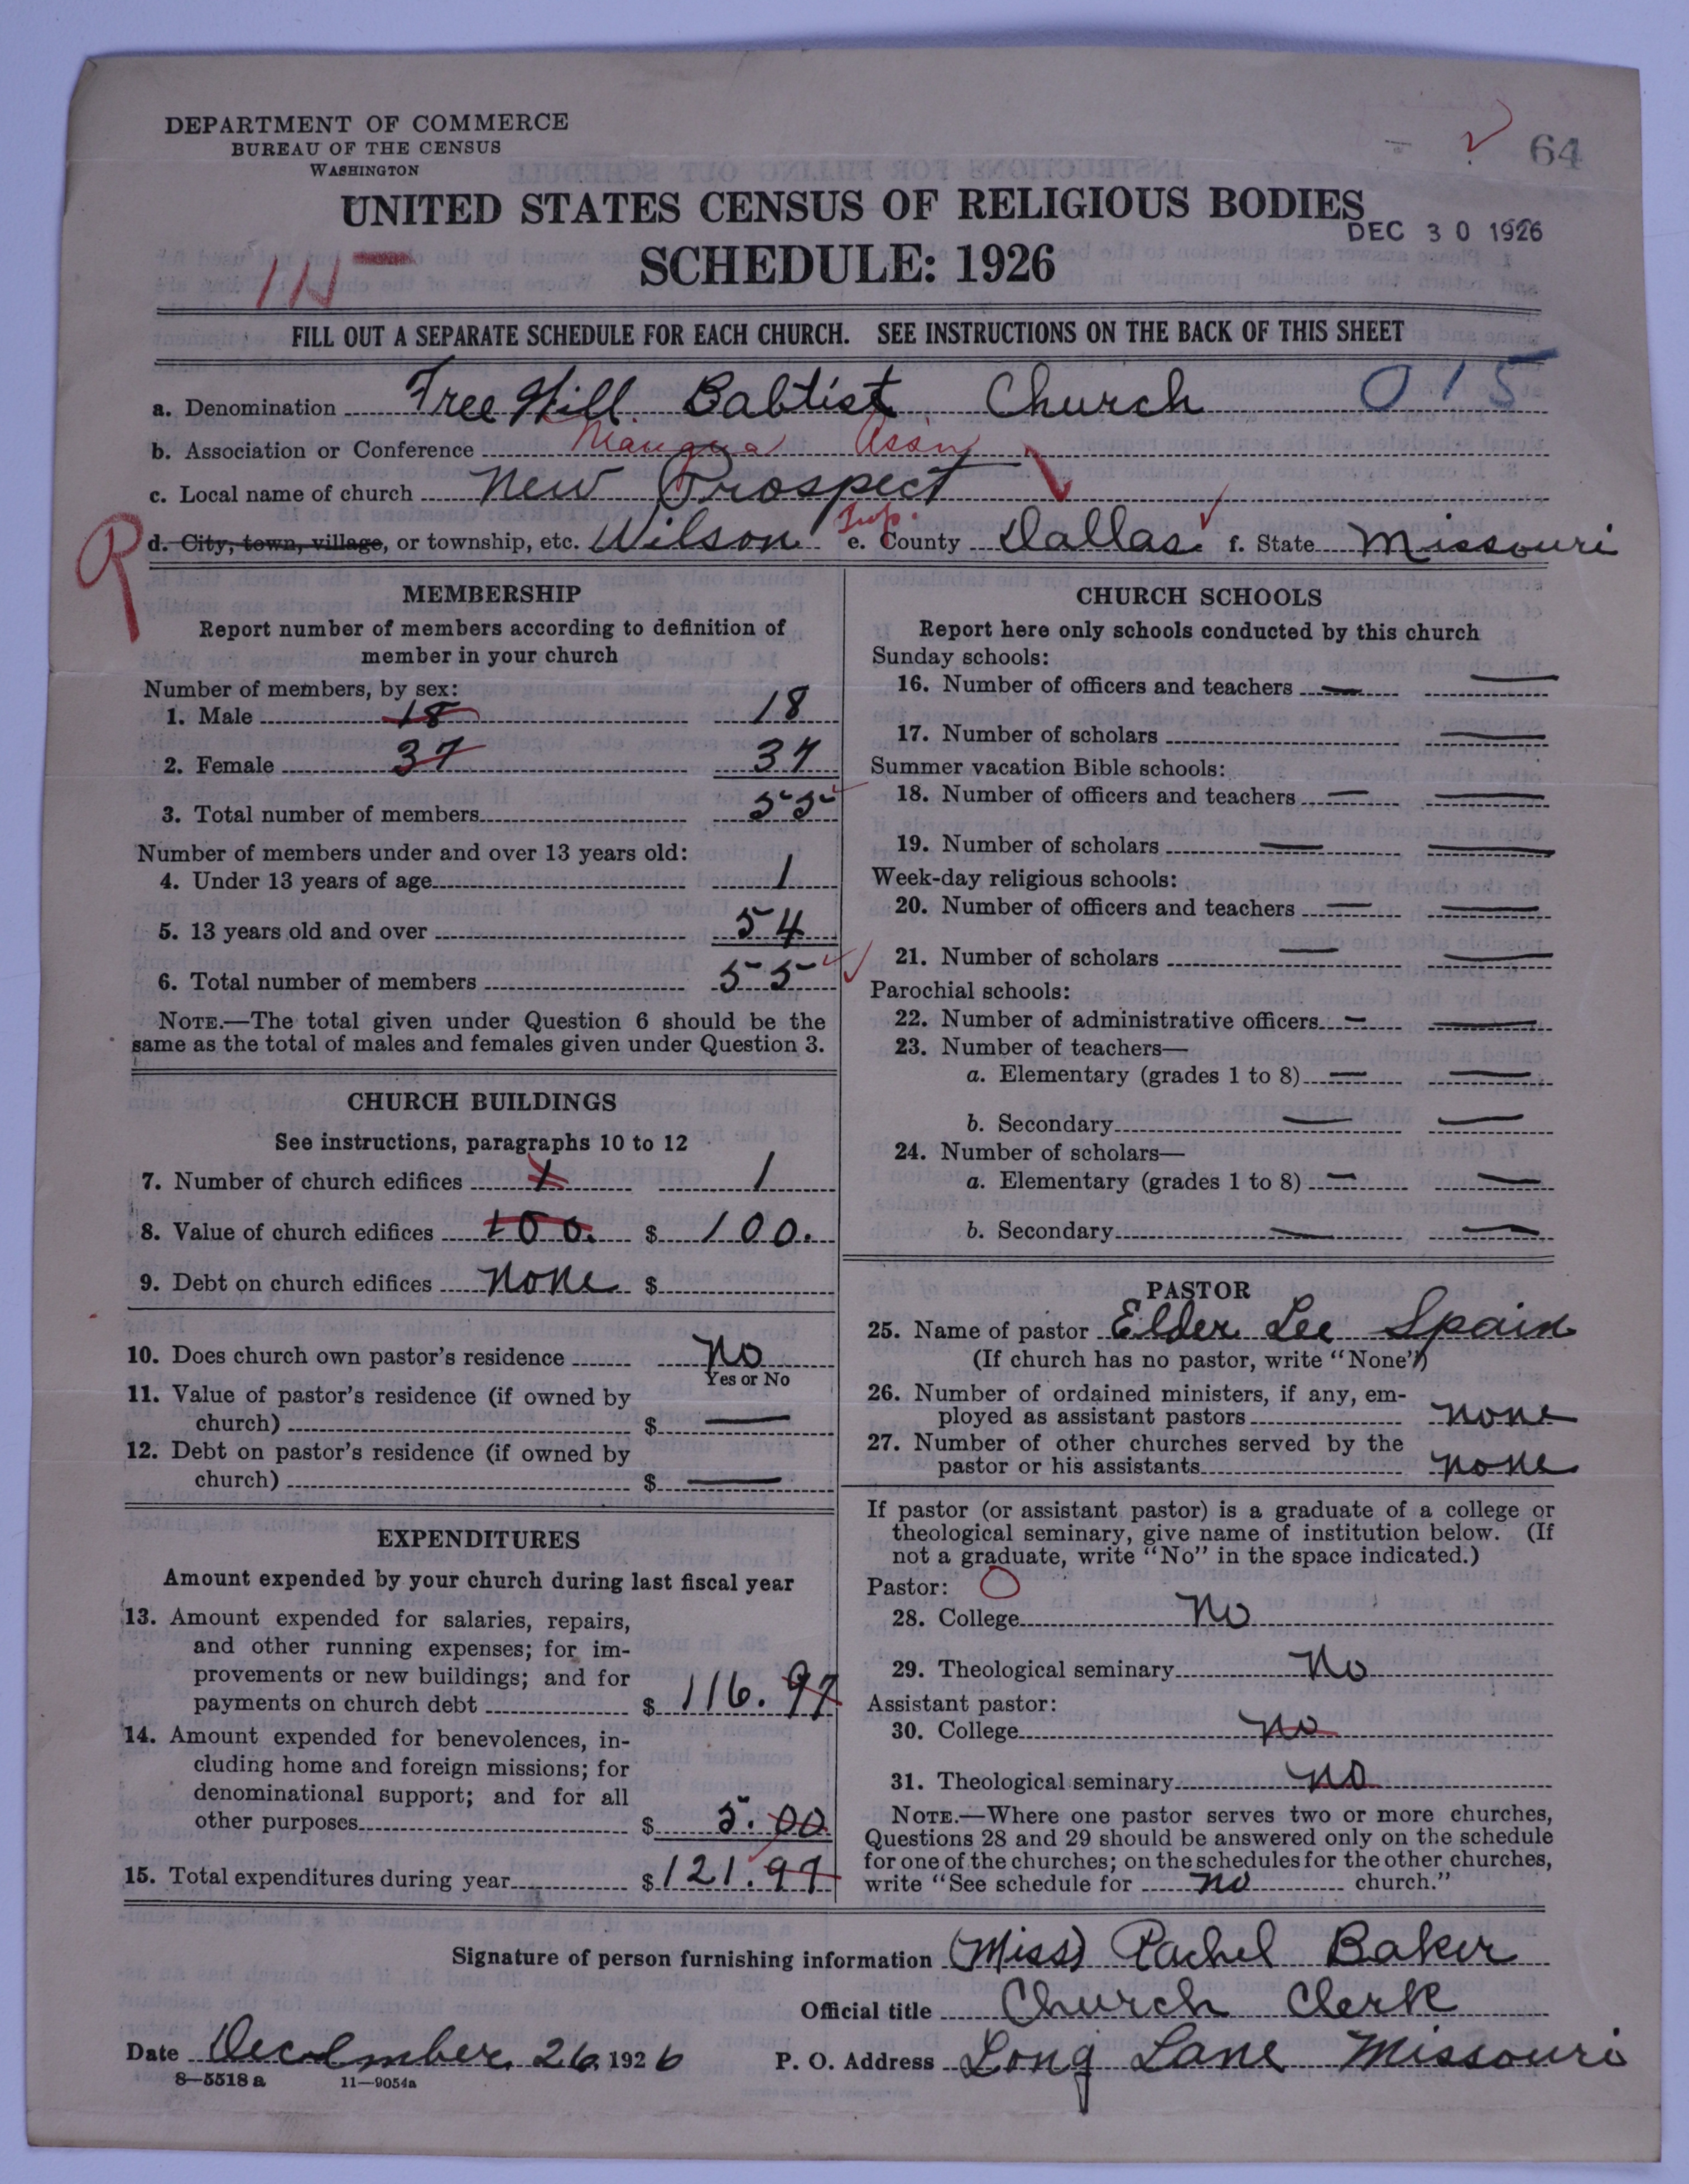 DEPARTMENT OF COMMERCE
BUREAU OF THE CENSUS
WASHINGTON
64
UNITED STATES CENSUS OF RELIGIOUS BODIES
DEC 30 1926
SCHEDULE: 1926
FILL OUT A SEPARATE SCHEDULE FOR EACH CHURCH. SEE INSTRUCTIONS ON THE BACK OF THIS SHEET
a. Denomination Free Will Babtist Church 015
b. Association or Conference Niangua Ass'n
c. Local name of church New Prospect
d. City, town, village, or township, etc. Wilson Twp. e. County Dallas. f. State Missouri
MEMBERSHIP
Report number of members according to definition of
member in your church
Number of members, by sex:
1. Male 18 18
2. Female 37 37
3. Total number of members 55
Number of members under and over 13 years old:
4. Under 13 years of age 1
5. 13 years old and over 54
6. Total number of members 55
NOTE.—The total given under Question 6 should be the
same as the total of males and females given under Question 3.
CHURCH BUILDINGS
See instructions, paragraphs 10 to 12
7. Number of church edifices 1 1
8. Value of church edifices 100. $ 100.
9. Debt on church edifices none $
10. Does church own pastor's residence No
Yes or No
11. Value of pastor's residence (if owned by
church) $ —
12. Debt on pastor's residence (if owned by
church) $ —
EXPENDITURES
Amount expended by your church during last fiscal year
13. Amount expended for salaries, repairs,
and other running expenses; for im-
provements or new buildings; and for
payments on church debt $ 116.97
14. Amount expended for benevolences, in-
cluding home and foreign missions; for
denominational support; and for all
other purposes $ 5.00
15. Total expenditures during year $ 121.97
CHURCH SCHOOLS
Report here only schools conducted by this church
Sunday schools:
16. Number of officers and teachers — —
17. Number of scholars —
Summer vacation Bible schools:
18. Number of officers and teachers — —
19. Number of scholars — —
Week-day religious schools:
20. Number of officers and teachers — —
21. Number of scholars — —
Parochial schools:
22. Number of administrative officers — —
23. Number of teachers—
a. Elementary (grades 1 to 8) — —
b. Secondary — —
24. Number of scholars—
a. Elementary (grades 1 to 8) — —
b. Secondary — —
PASTOR
25. Name of pastor Elder Lee Spain
(If church has no pastor, write "None")
26. Number of ordained ministers, if any, em-
ployed as assistant pastors none
27. Number of other churches served by the
pastor or his assistants none
If pastor (or assistant pastor) is a graduate of a college or
theological seminary, give name of institution below. (If
not a graduate, write "No" in the space indicated.)
Pastor:
28. College No
29. Theological seminary No
Assistant pastor:
30. College no
31. Theological seminary no
NOTE.—Where one pastor serves two or more churches,
Questions 28 and 29 should be answered only on the schedule
for one of the churches; on the schedules for the other churches,
write "See schedule for no church."
Signature of person furnishing information (Miss) Rachel Baker
Official title Church Clerk
Date December 26 1926 P. O. Address Long Lane Missouri
8—5518 a 11—9054a